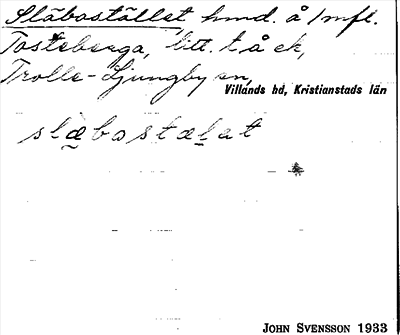 Släbostället hmd. å 1 mfl.
Tosteberga, litt. t å ek,
Trolle-Ljungby sn,
Villands hd, Kristianstads län
slæbostælat
JOHN SVENSSON 1933